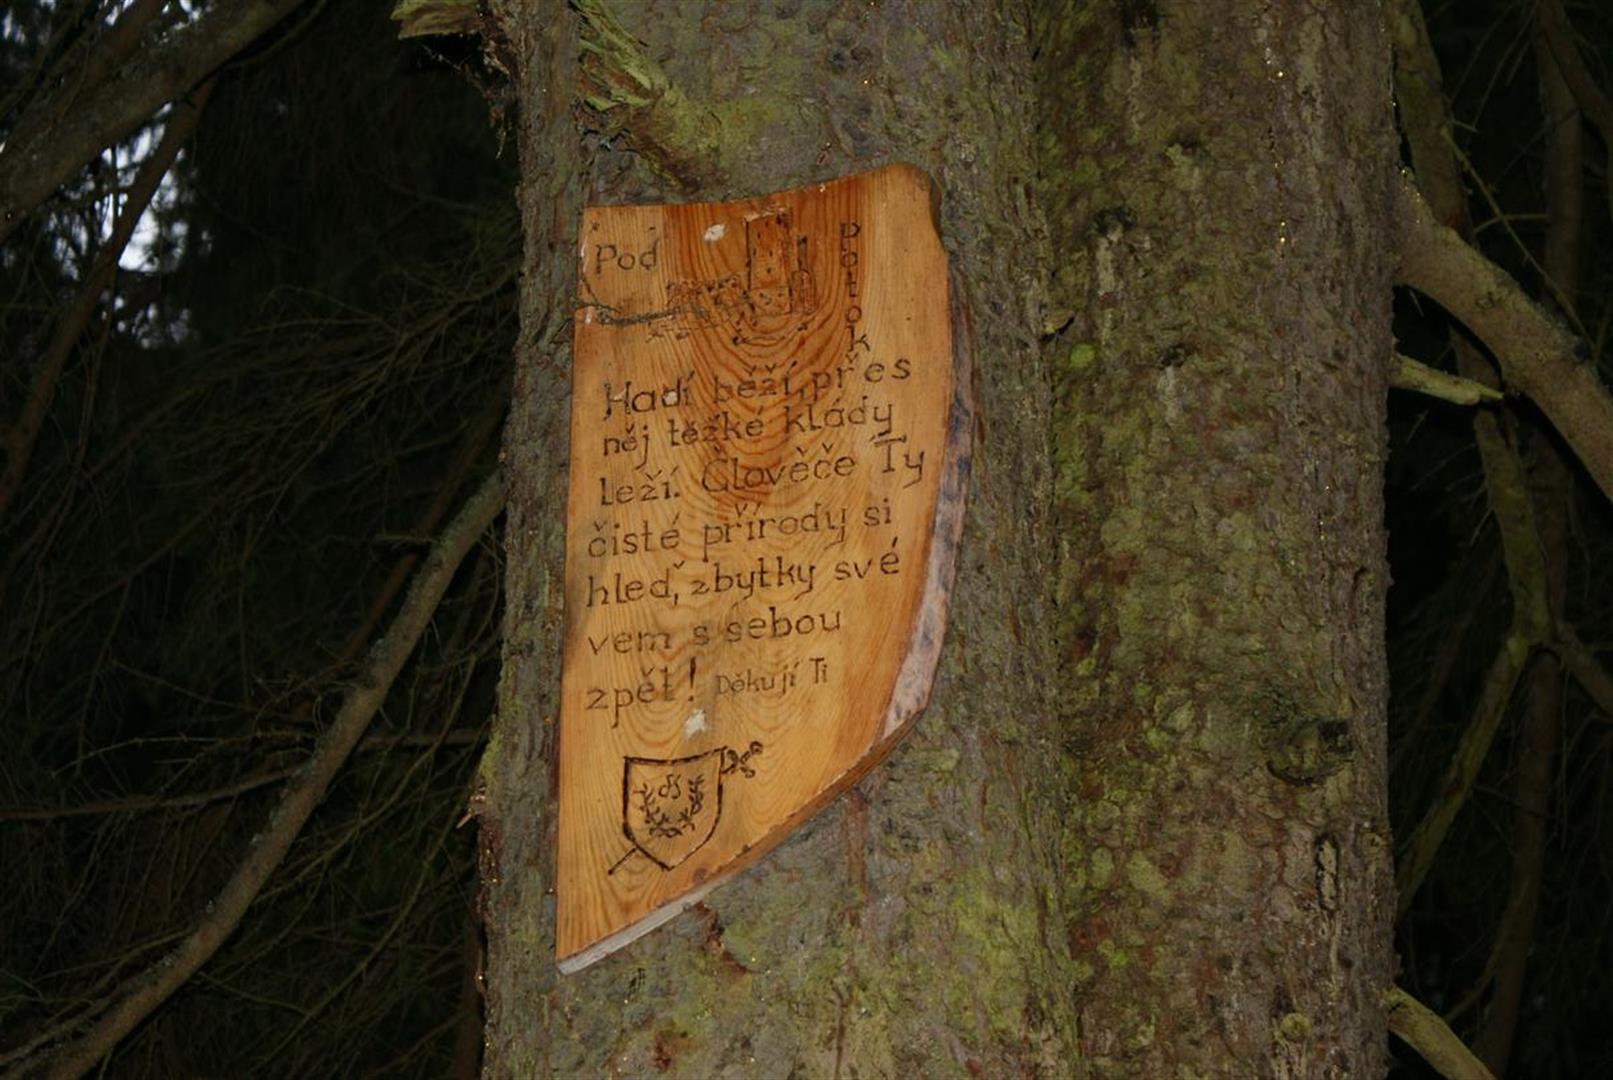 Pod
potok
Hadí běží, přes
něj těžké klády
leží. Člověče Ty
čisté přírody si
hleď, zbytky své
vem s sebou
zpět! Děkují Ti